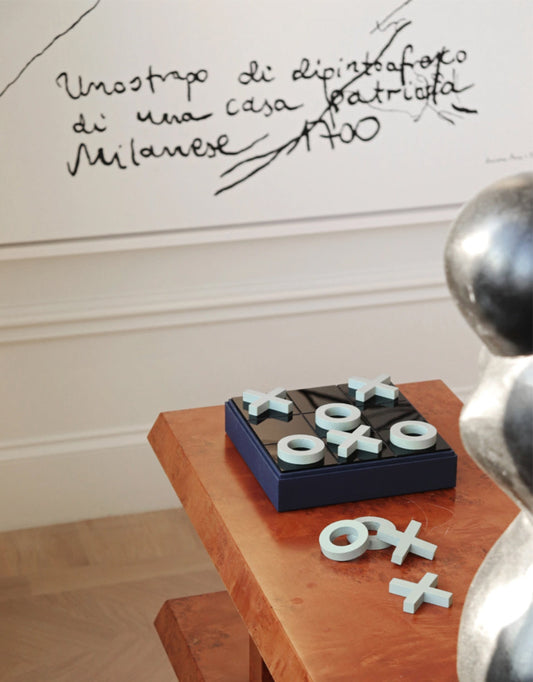 Uno strapo di dipinto afresco
di una casa patrizia
Milanese 1700